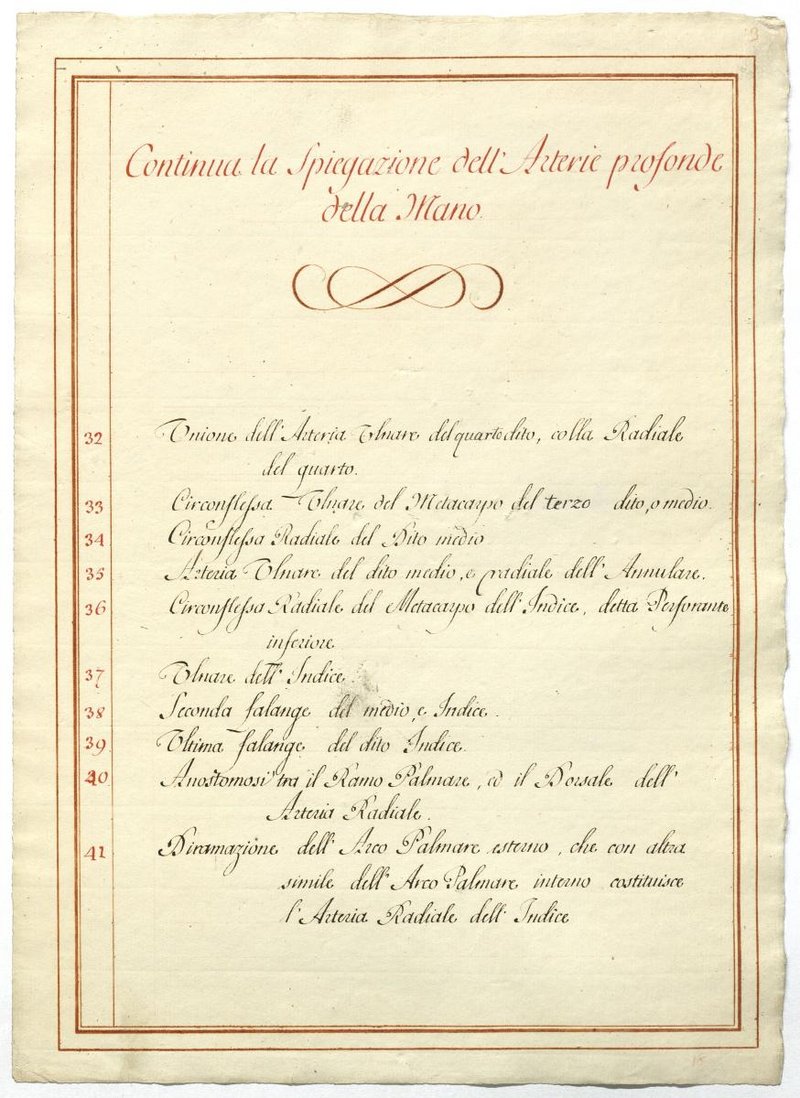 Continua la Spiegazione dell'Arterie profonde
della Mano.
32 Vnione dell'Arteria Vlnare del quarto dito, colla Radiale
del quarto.
33 Circonflessa Vlnare del Metacarpo del terzo dito, o medio.
34 Circonflessa Radiale del Dito medio
35 Arteria Vlnare del dito medio, e radiale dell'Annulare.
36 Circonflessa Radiale del Metacarpo dell'Indice, detta Perforante
inferiore
37 Vlnare dell'Indice.
38 Seconda falange del medio, e Indice.
39 Vltima falange del dito Indice.
40 Anostomosi tra il Ramo Palmare, ed il Dorsale dell'
Arteria Radiale.
41 Diramazione dell'Arco Palmare esterno, che con altra
simile dell'Arco Palmare interno costituisce
l'Arteria Radiale dell'Indice